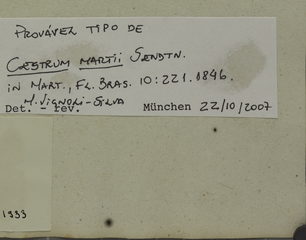 PROVÁVEL TIPO DE
CESTRUM MARTII SENDTN.
IN MART., FL. BRAS. 10:221. 1846.
M. VIGNOLI-SILVA
Det. – rev. München 22/10/2007
1993